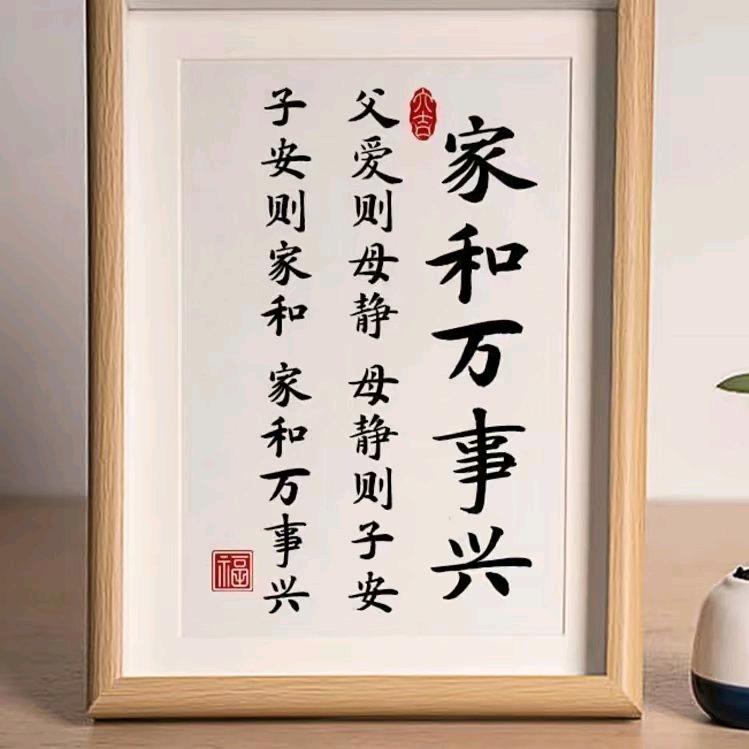 家和万事兴
大吉
父爱则母静 母静则子安
子安则家和 家和万事兴
福